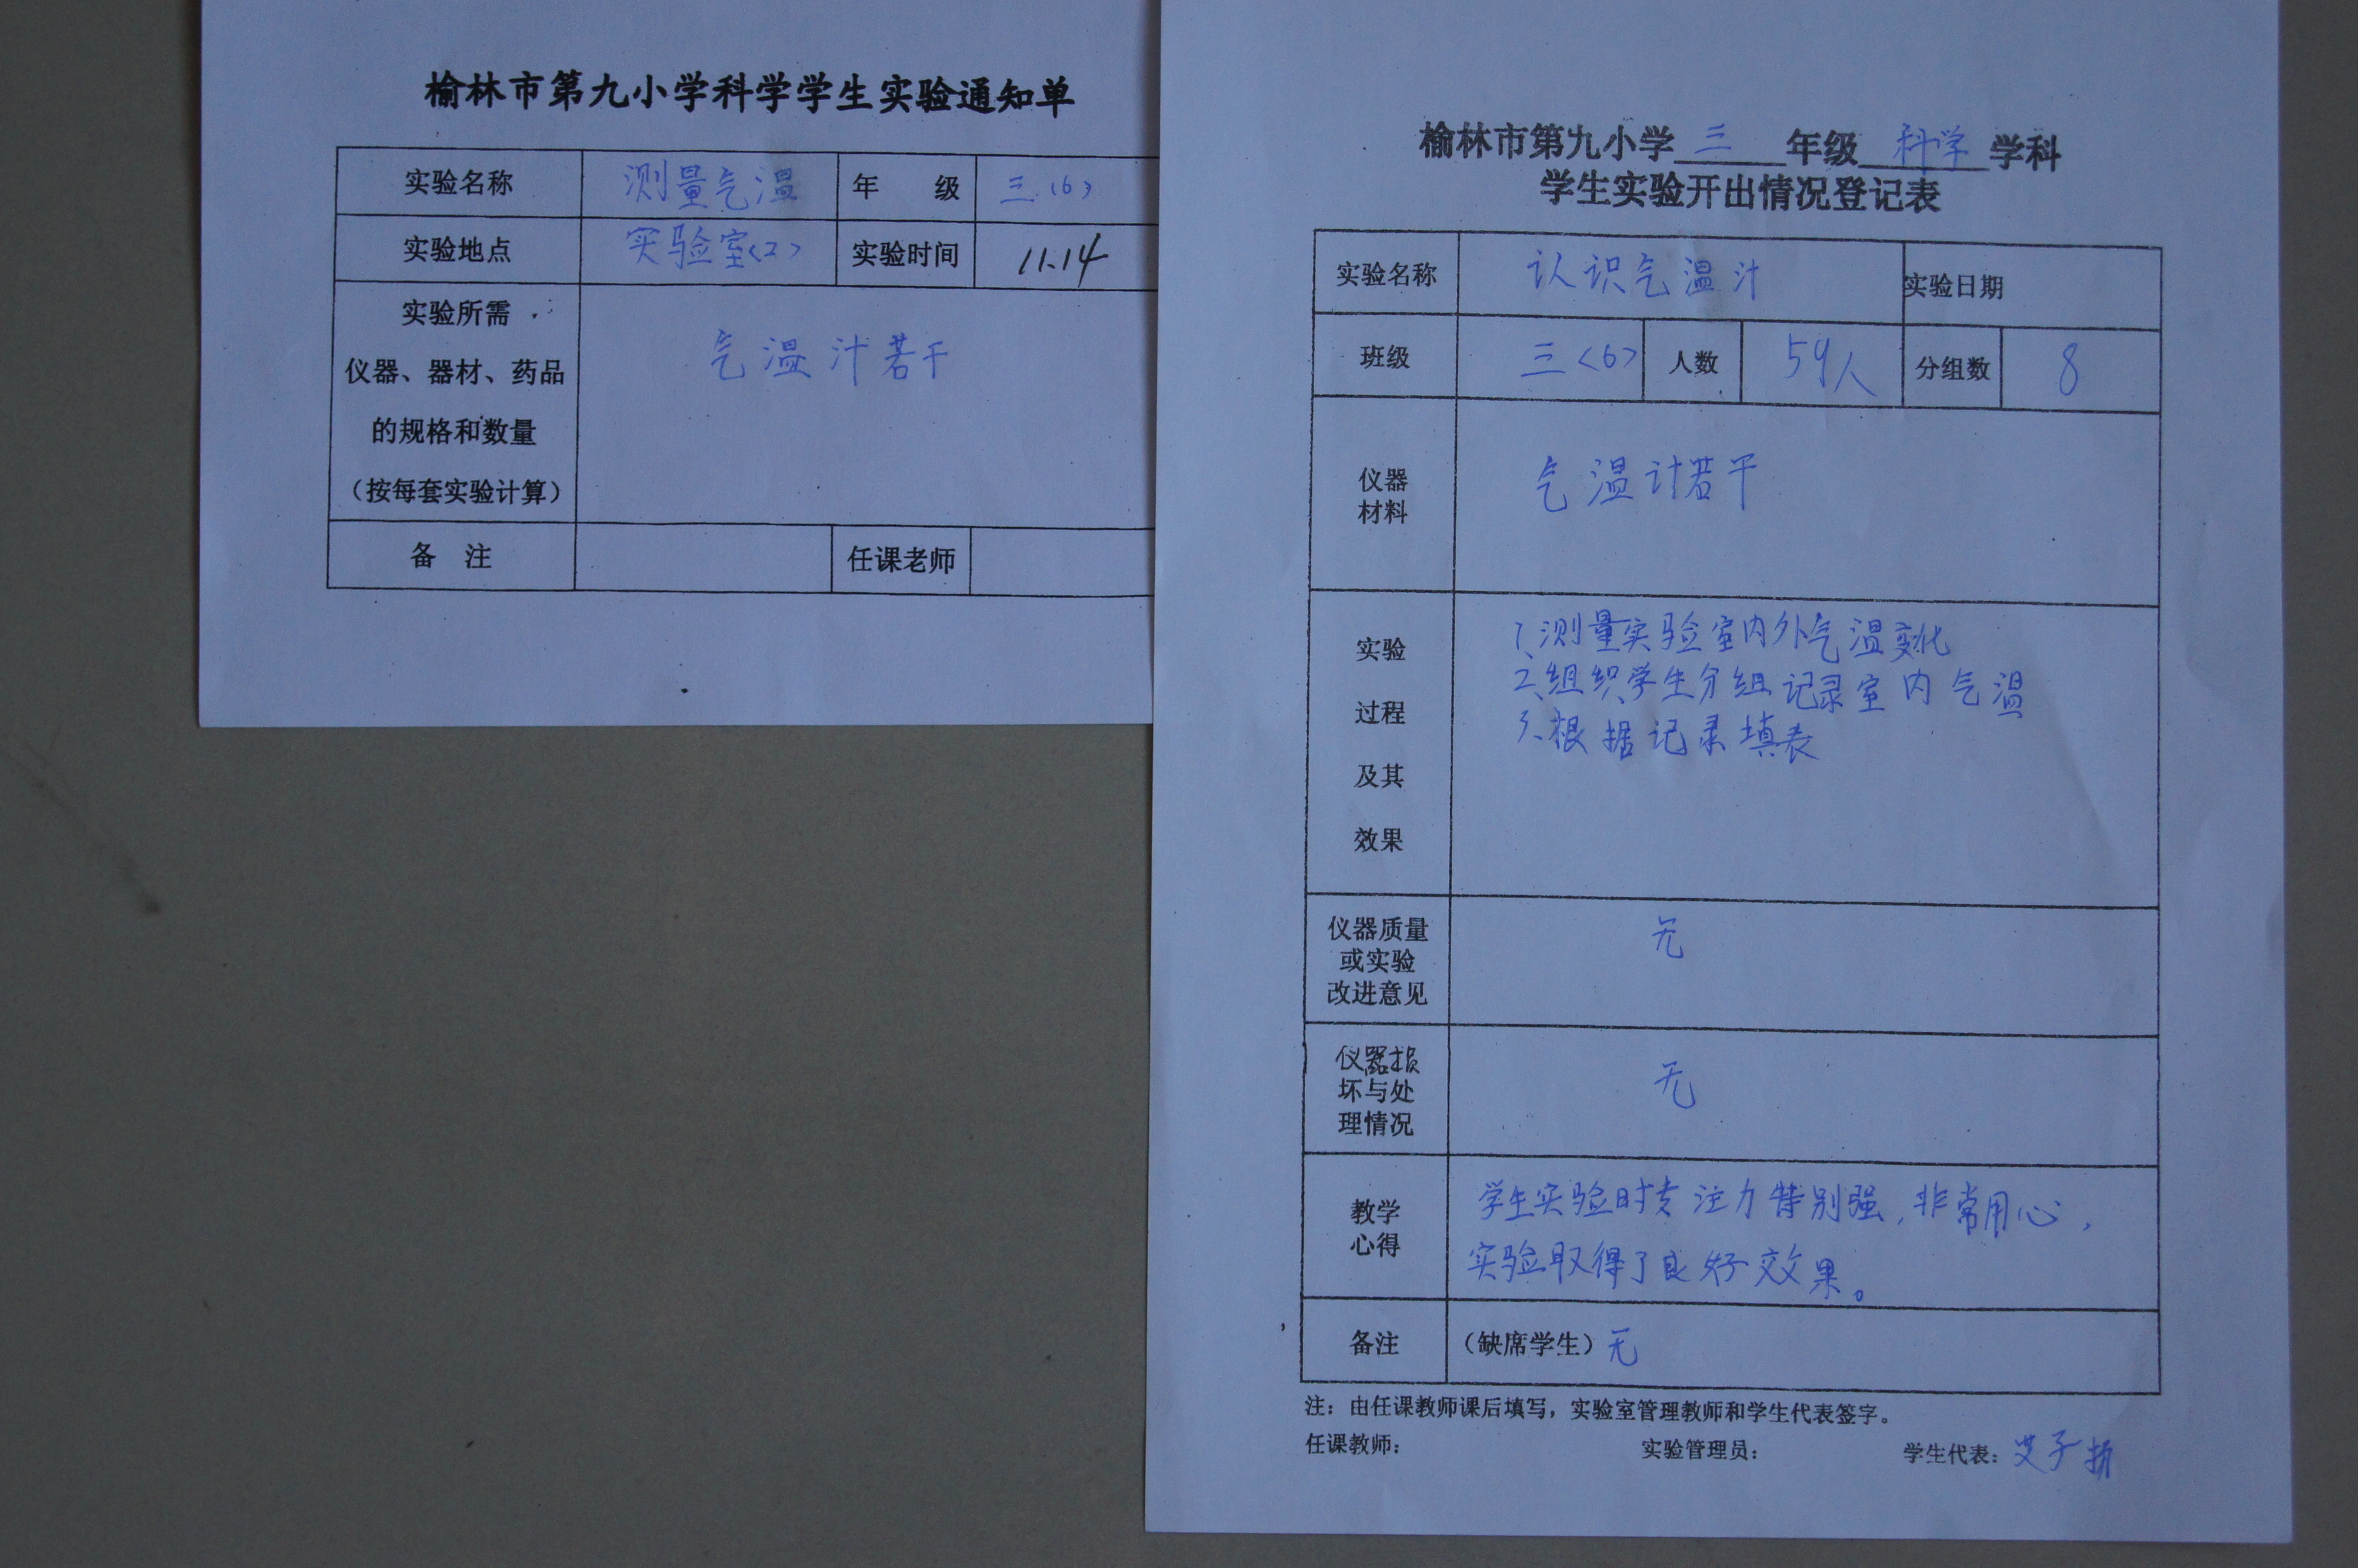 榆林市第九小学科学学生实验通知单
实验名称 测量气温 年 级 三(6)
实验地点 实验室<2> 实验时间 11.14
实验所需
仪器、器材、药品
的规格和数量
(按每套实验计算)
气温计若干
备 注 任课老师
榆林市第九小学 三 年级 科学 学科
学生实验开出情况登记表
实验名称 认识气温计 实验日期
班级 三<6> 人数 59人 分组数 8
仪器
材料
气温计若干
实验
过程
及其
效果
1、测量实验室内外气温变化
2、组织学生分组记录室内气温
3、根据记录填表
仪器质量
或实验
改进意见
无
仪器损
坏与处
理情况
无
教学
心得
学生实验时专注力特别强,非常用心,
实验取得了良好效果。
备注 (缺席学生)无
注:由任课教师课后填写,实验室管理教师和学生代表签字。
任课教师: 实验管理员: 学生代表:艾子扬